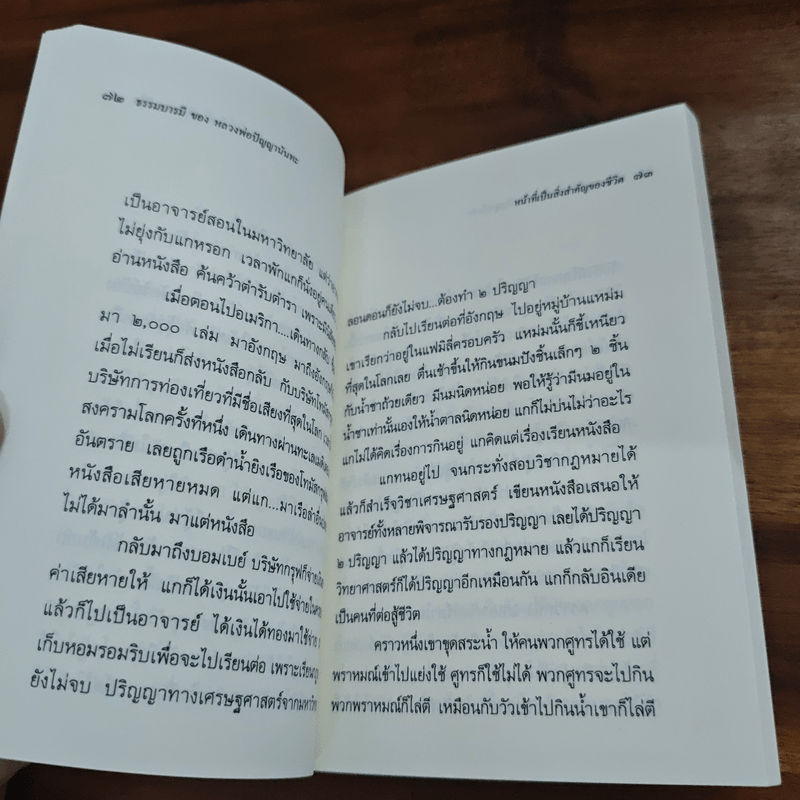 ๘๒ ธรรมบารมี ของ หลวงพ่อปัญญานันทะ
เป็นอาจารย์สอนในมหาวิทยาลัย แต่
ไม่ยุ่งกับแกหรอก เวลาพักแกก็นั่งอยู่
อ่านหนังสือ ค้นคว้าตำรับตำรา เพราะ
เมื่อตอนไปอเมริกา....เดินทางกลับ
มา ๒,๐๐๐ เล่ม มาอังกฤษ มาถึงอังกฤษ
เมื่อไม่เรียนก็ส่งหนังสือกลับ กับบริษัทโทมัส
บริษัทการท่องเที่ยวที่มีชื่อเสียงที่สุดในโลก
สงครามโลกครั้งที่หนึ่ง เดินทางผ่านทะเล
อันตราย เลยถูกเรือดำน้ำยิงเรือของโทมัส
หนังสือเสียหายหมด แต่แก...มาเรือลำอื่น
ไม่ได้มาลำนั้น มาแต่หนังสือ
กลับมาถึงบอมเบย์ บริษัทกรุฟก็จ่าย
ค่าเสียหายให้ แกก็ได้เงินนั้นเอาไปใช้จ่าย
แล้วก็ไปเป็นอาจารย์ ได้เงินได้ทองมาใช้จ่าย
เก็บหอมรอมริบเพื่อจะไปเรียนต่อ เพราะเรียน
ยังไม่จบ ปริญญาทางเศรษฐศาสตร์จาก
หน้าที่เป็นสิ่งสำคัญของชีวิต ๘๓
ลอนดอนก็ยังไม่จบ...ต้องทำ ๒ ปริญญา
กลับไปเรียนต่อที่อังกฤษ ไปอยู่หมู่บ้านแหม่ม
เขาเรียกว่าอยู่ในแฟมิลี่ครอบครัว แหม่มนั้นก็ขี้เหนียว
ที่สุดในโลกเลย ตื่นเช้าขึ้นให้กินขนมปังชิ้นเล็กๆ ๒ ชิ้น
กับน้ำชาถ้วยเดียว มีนมนิดหน่อย พอให้รู้ว่ามีนมอยู่ใน
น้ำชาเท่านั้นเองให้น้ำตาลนิดหน่อย แกก็ไม่บ่นไม่ว่าอะไร
แกไม่ได้คิดเรื่องการกินอยู่ แกคิดแต่เรื่องเรียนหนังสือ
แกทนอยู่ไป จนกระทั่งสอบวิชากฎหมายได้
แล้วก็สำเร็จวิชาเศรษฐศาสตร์ เขียนหนังสือเสนอให้
อาจารย์ทั้งหลายพิจารณารับรองปริญญา เลยได้ปริญญา
๒ ปริญญา แล้วได้ปริญญาทางกฎหมาย แล้วแกก็เรียน
วิทยาศาสตร์ก็ได้ปริญญาอีกเหมือนกัน แกก็กลับอินเดีย
เป็นคนที่ต่อสู้ชีวิต
คราวหนึ่งเขาขุดสระน้ำ ให้คนพวกศูทรได้ใช้ แต่
พราหมณ์เข้าไปแย่งใช้ ศูทรก็ใช้ไม่ได้ พวกศูทรจะไปกิน
พวกพราหมณ์ก็ไล่ตี เหมือนกับวัวเข้าไปกินน้ำเขาก็ไล่ตี